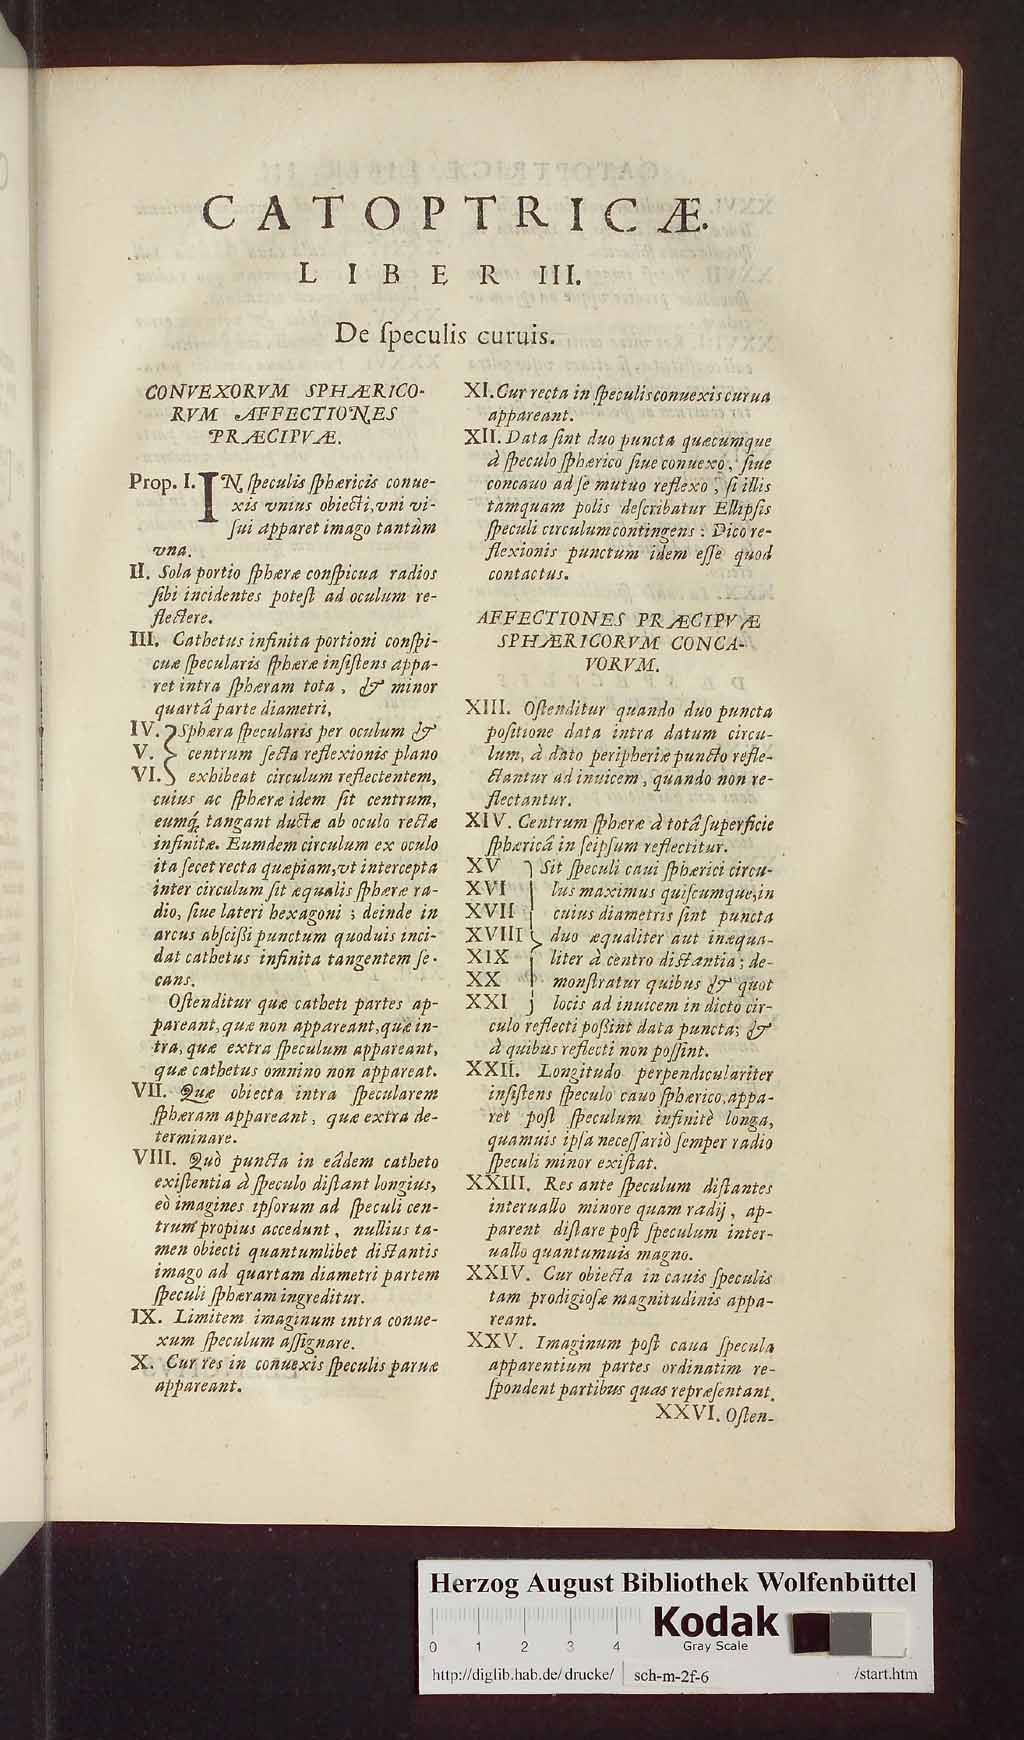 CATOPTRICÆ.
LIBER III.
De ſpeculis curuis.
CONVEXORVM SPHÆRICO-
RVM AFFECTIONES
PRÆCIPVÆ.
Prop. I. IN ſpeculis ſphæricis conue-
xis vnius obiecti, vni vi-
ſui apparet imago tantùm
vna.
II. Sola portio ſphæræ conſpicua radios
ſibi incidentes poteſt ad oculum re-
flectere.
III. Cathetus infinita portioni conſpi-
cuæ ſpecularis ſphæræ inſiſtens appa-
ret intra ſphæram tota, & minor
quartâ parte diametri,
IV. Sphæra ſpecularis per oculum &
V. centrum ſecta reflexionis plano
VI. exhibeat circulum reflectentem,
cuius ac ſphæræ idem ſit centrum,
eumq́; tangant ductæ ab oculo rectæ
infinitæ. Eumdem circulum ex oculo
ita ſecet recta quæpiam, vt intercepta
inter circulum ſit æqualis ſphæræ ra-
dio, ſiue lateri hexagoni; deinde in
arcus abſciſſi punctum quoduis inci-
dat cathetus infinita tangentem ſe-
cans.
Oſtenditur quæ catheti partes ap-
pareant, quæ non appareant, quæ in-
tra, quæ extra ſpeculum appareant,
quæ cathetus omnino non appareat.
VII. Quæ obiecta intra ſpecularem
ſphæram appareant, quæ extra de-
terminare.
VIII. Quò puncta in eâdem catheto
exiſtentia à ſpeculo diſtant longius,
eò imagines ipſorum ad ſpeculi cen-
trum propius accedunt, nullius ta-
men obiecti quantumlibet diſtantis
imago ad quartam diametri partem
ſpeculi ſphæram ingreditur.
IX. Limitem imaginum intra conue-
xum ſpeculum aſſignare.
X. Cur res in conuexis ſpeculis paruæ
appareant.
XI. Cur recta in ſpeculis conuexis curua
appareant.
XII. Data ſint duo puncta quæcumque
à ſpeculo ſphærico ſiue conuexo, ſiue
concauo ad ſe mutuo reflexo, ſi illis
tamquam polis deſcribatur Ellipſis
ſpeculi circulum contingens: Dico re-
flexionis punctum idem eſſe quod
contactus.
AFFECTIONES PRÆCIPVÆ
SPHÆRICORVM CONCA-
VORVM.
XIII. Oſtenditur quando duo puncta
poſitione data intra datum circu-
lum, à dato peripheriæ puncto refle-
ctantur ad inuicem, quando non re-
flectantur.
XIV. Centrum ſphæræ à totâ ſuperficie
ſphæricâ in ſeipſum reflectitur.
XV Sit ſpeculi caui ſphærici circu-
XVI lus maximus quiſcumque, in
XVII cuius diametris ſint puncta
XVIII duo æqualiter aut inæqua-
XIX liter à centro diſtantia; de-
XX monſtratur quibus & quot
XXI locis ad inuicem in dicto cir-
culo reflecti poſſint data puncta; &
à quibus reflecti non poſſint.
XXII. Longitudo perpendiculariter
inſiſtens ſpeculo cauo ſphærico, appa-
ret poſt ſpeculum infinitè longa,
quamuis ipſa neceſſariò ſemper radio
ſpeculi minor exiſtat.
XXIII. Res ante ſpeculum diſtantes
interuallo minore quam radij, ap-
parent diſtare poſt ſpeculum inter-
uallo quantumuis magno.
XXIV. Cur obiecta in cauis ſpeculis
tam prodigioſæ magnitudinis appa-
reant.
XXV. Imaginum poſt caua ſpecula
apparentium partes ordinatim re-
ſpondent partibus quas repræſentant.
XXVI. Oſten-
Herzog August Bibliothek Wolfenbüttel
Kodak
Gray Scale
0 1 2 3 4
http://diglib.hab.de/drucke/ sch-m-2f-6 /start.htm